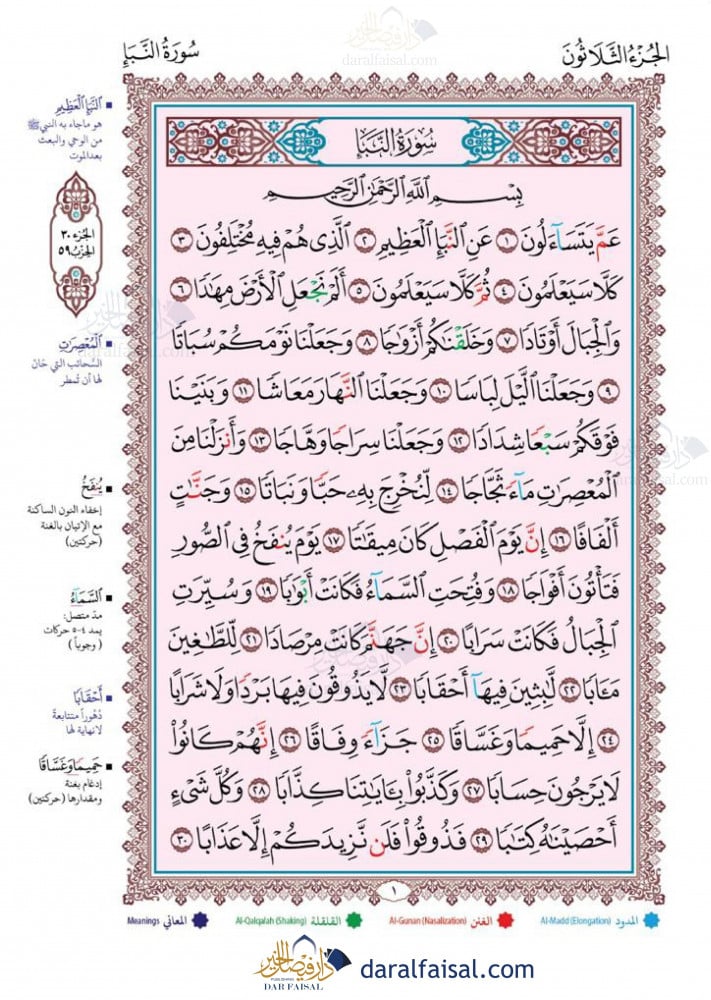 الجُزْءُ الثَّلَاثُونَ
سُورَةُ النَّبَإِ
سُورَةُ النَّبَإِ
بِسْمِ اللَّهِ الرَّحْمَٰنِ الرَّحِيمِ
عَمَّ يَتَسَآءَلُونَ ١ عَنِ ٱلنَّبَإِ ٱلْعَظِيمِ ٢ ٱلَّذِى هُمْ فِيهِ مُخْتَلِفُونَ ٣
كَلَّا سَيَعْلَمُونَ ٤ ثُمَّ كَلَّا سَيَعْلَمُونَ ٥ أَلَمْ نَجْعَلِ ٱلْأَرْضَ مِهَٰدًا ٦
وَٱلْجِبَالَ أَوْتَادًا ٧ وَخَلَقْنَٰكُمْ أَزْوَٰجًا ٨ وَجَعَلْنَا نَوْمَكُمْ سُبَاتًا
٩ وَجَعَلْنَا ٱلَّيْلَ لِبَاسًا ١٠ وَجَعَلْنَا ٱلنَّهَارَ مَعَاشًا ١١ وَبَنَيْنَا
فَوْقَكُمْ سَبْعًا شِدَادًا ١٢ وَجَعَلْنَا سِرَاجًا وَهَّاجًا ١٣ وَأَنزَلْنَا مِنَ
ٱلْمُعْصِرَٰتِ مَآءً ثَجَّاجًا ١٤ لِّنُخْرِجَ بِهِۦ حَبًّا وَنَبَاتًا ١٥ وَجَنَّٰتٍ
أَلْفَافًا ١٦ إِنَّ يَوْمَ ٱلْفَصْلِ كَانَ مِيقَٰتًا ١٧ يَوْمَ يُنفَخُ فِى ٱلصُّورِ
فَتَأْتُونَ أَفْوَاجًا ١٨ وَفُتِحَتِ ٱلسَّمَآءُ فَكَانَتْ أَبْوَٰبًا ١٩ وَسُيِّرَتِ
ٱلْجِبَالُ فَكَانَتْ سَرَابًا ٢٠ إِنَّ جَهَنَّمَ كَانَتْ مِرْصَادًا ٢١ لِّلطَّٰغِينَ
مَـَٔابًا ٢٢ لَّٰبِثِينَ فِيهَآ أَحْقَابًا ٢٣ لَّا يَذُوقُونَ فِيهَا بَرْدًا وَلَا شَرَابًا
٢٤ إِلَّا حَمِيمًا وَغَسَّاقًا ٢٥ جَزَآءً وِفَاقًا ٢٦ إِنَّهُمْ كَانُوا۟
لَا يَرْجُونَ حِسَابًا ٢٧ وَكَذَّبُوا۟ بِـَٔايَٰتِنَا كِذَّابًا ٢٨ وَكُلَّ شَىْءٍ
أَحْصَيْنَٰهُ كِتَٰبًا ٢٩ فَذُوقُوا۟ فَلَن نَّزِيدَكُمْ إِلَّا عَذَابًا ٣٠
١
النَّبَإِ الْعَظِيمِ
هو ماجاء به النبي ﷺ
من الوحي والبعث
بعد الموت
الجزء ٣٠
الحزب ٥٩
الْمُعْصِرَٰتِ
السَّحائب التي حَانَ
لها أن تُمطر
يُنفَخُ
إخفاء النون الساكنة
مع الإتيان بالغنة
(حركتين)
السَّمَآءُ
مدّ متصل:
يمد ٤-٥ حركات
( وجوباً )
أَحْقَابًا
دُهُوراً متتابعةً
لانهاية لها
حَمِيمًا وَغَسَّاقًا
إدغام بغنة
ومقدارها (حركتين)
المدود Al-Madd (Elongation)
الغنن Al-Gunan (Nasalization)
القلقلة Al-Qalqalah (Shaking)
المعاني Meanings
دار فيصل الخير
DAR FAISAL
daralfaisal.com
دار فيصل الخير
daralfaisal.com